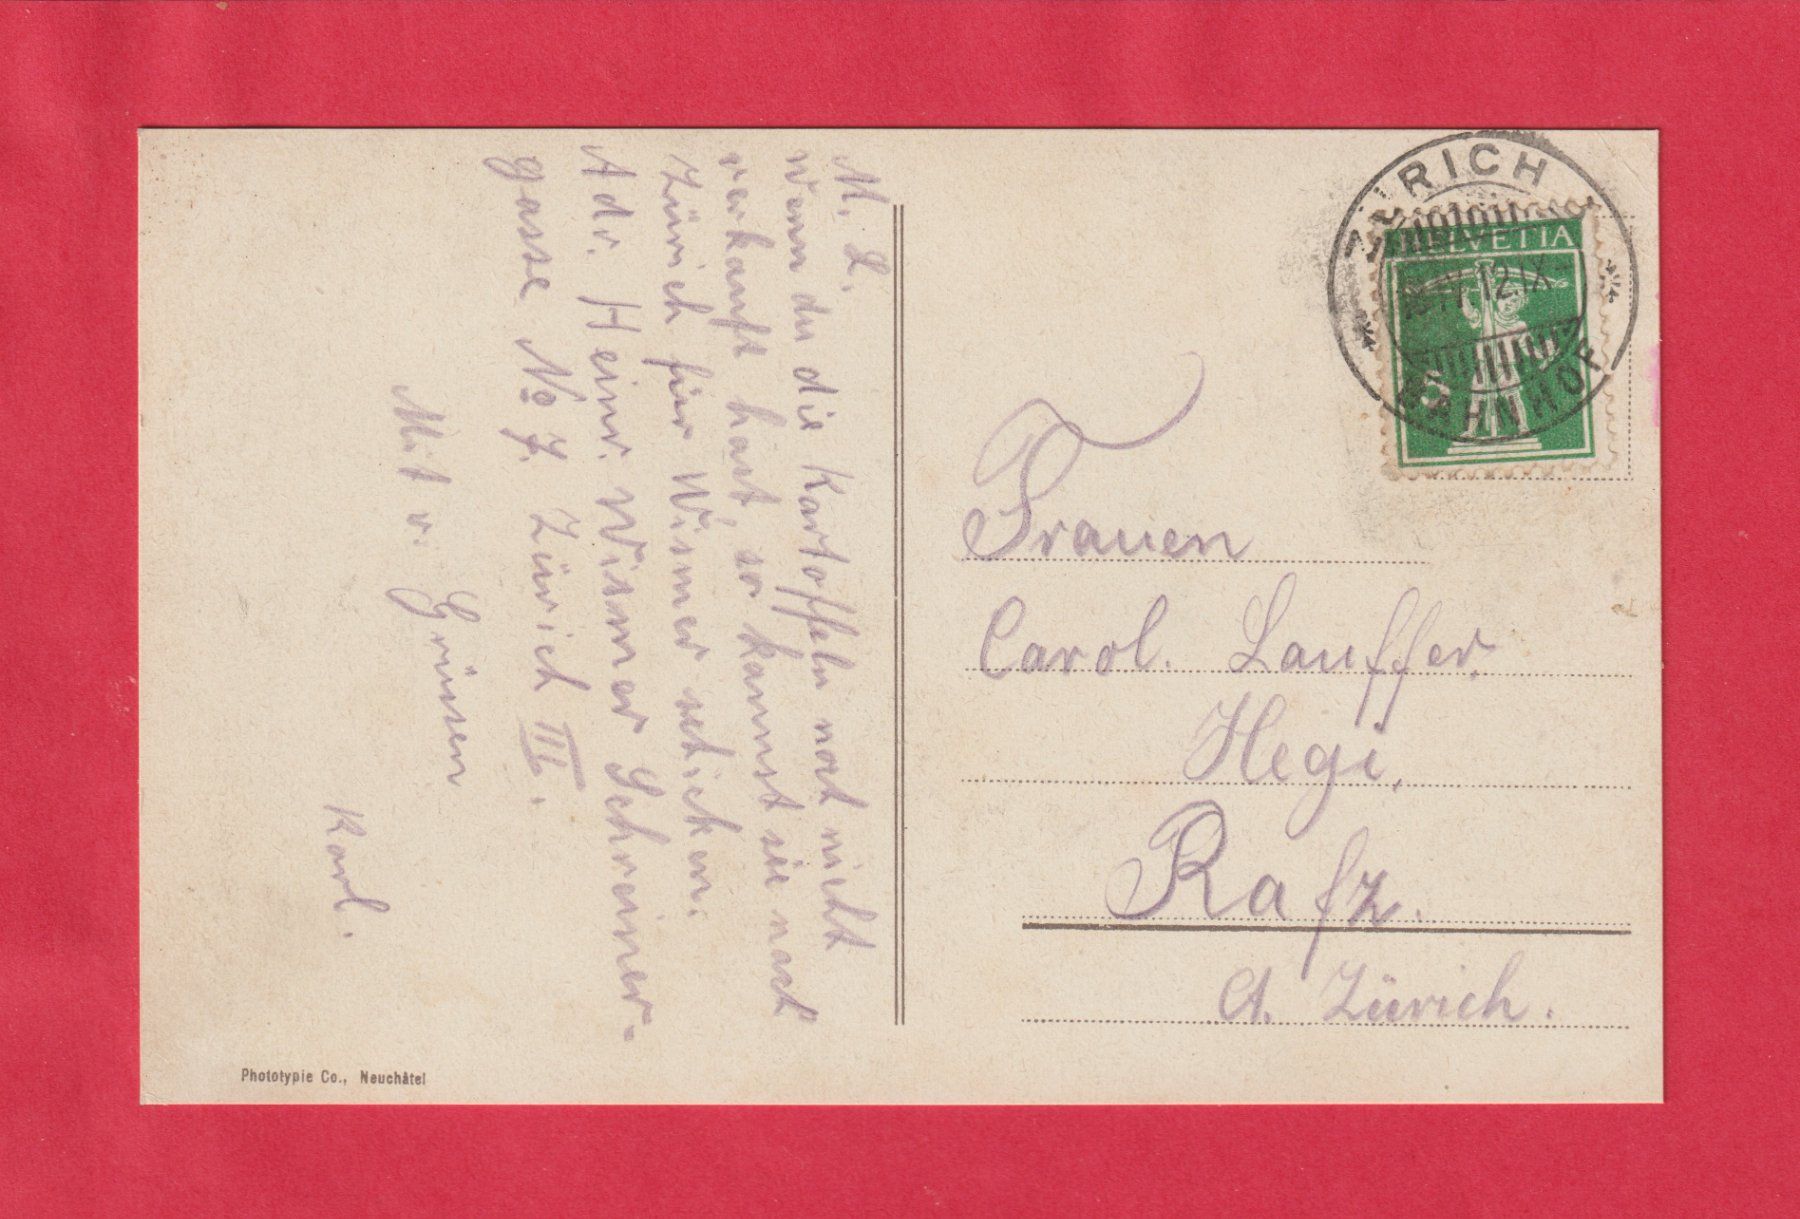 M. L.
Wenn du die Kartoffeln noch nicht
verkauft hast, so kannst sie nach
Zürich für Wismer schicken.
Adr. Heinr. Wismer Schreiner-
gasse No 7. Zürich III.
Mit v. Grüssen
Karl.
Phototypie Co., Neuchâtel
ZÜRICH
HELVETIA
12.IX
5
BAHNHOF
Frauen
Carol. Lauffer.
Hegi.
Rafz.
Ct. Zürich.